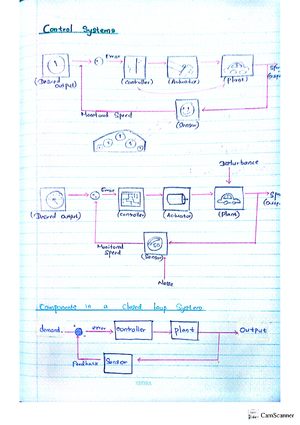 Control Systems
Error
(Desired output)
(Controller)
(Actuator)
(Plant)
Monitored Speed
(Sensor)
Disturbance
Error
(Desired output)
(Controller)
(Actuator)
(Plant)
Monitored Speed
(Sensor)
Noise
Components in a closed loop System
demand
error
Controller
plant
Output
Feedback
Sensor
CamScanner